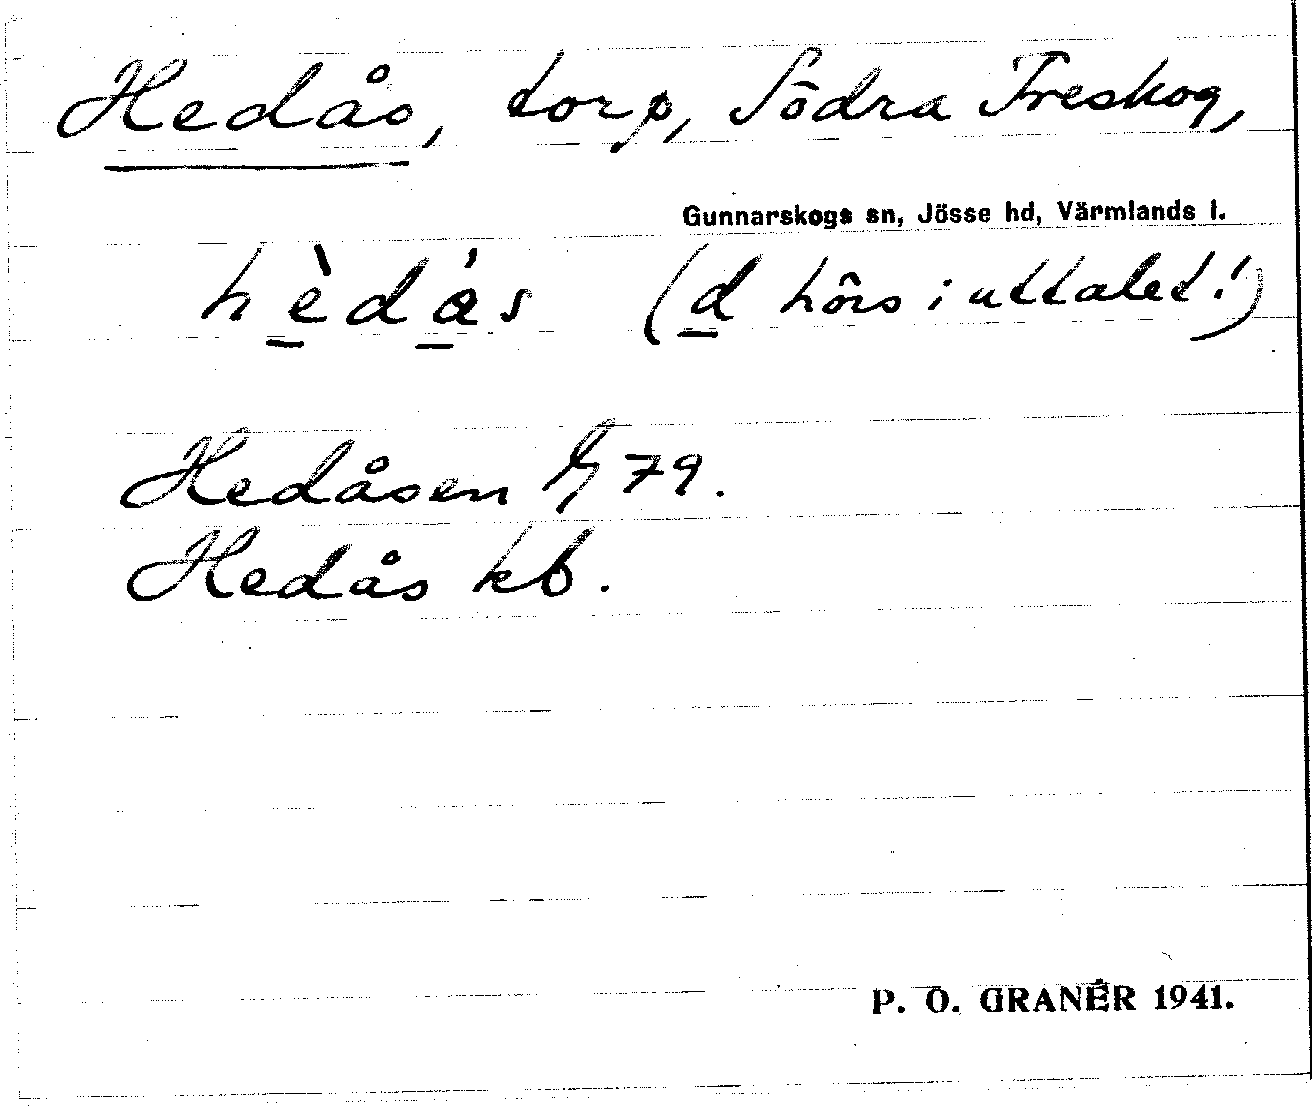 Hedås, torp, Södra Treskog,
Gunnarskogs sn, Jösse hd, Värmlands l.
(d hörs i uttalet!)
Hedåsen 79.
Hedås kb.
P. O. GRANÉR 1941.